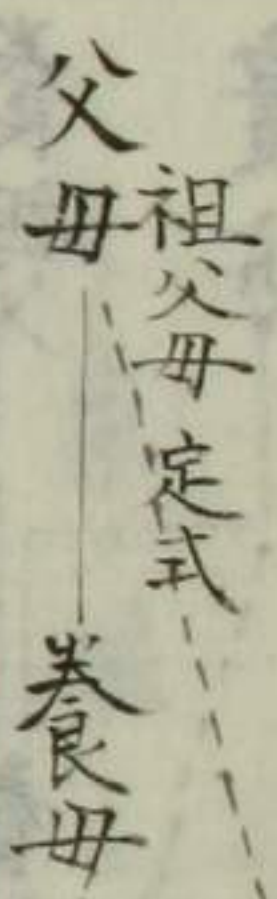 祖父母 定式
父母
養母